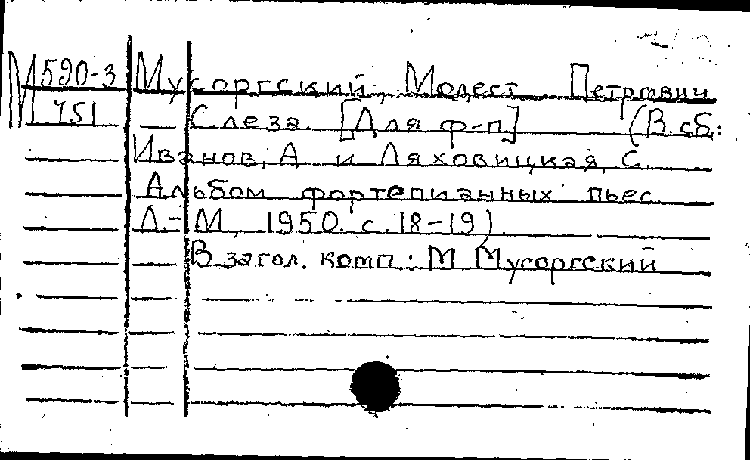 М 590-3 Мусоргский, Модест Петрович
М 751 Слеза. [Для ф-п] (В сб:
Иванов, А и Ляховицкая, С.
Альбом фортепианных пьес
Л.-М, 1950. с. 18-19)
В загол. комп.: М Мусоргский